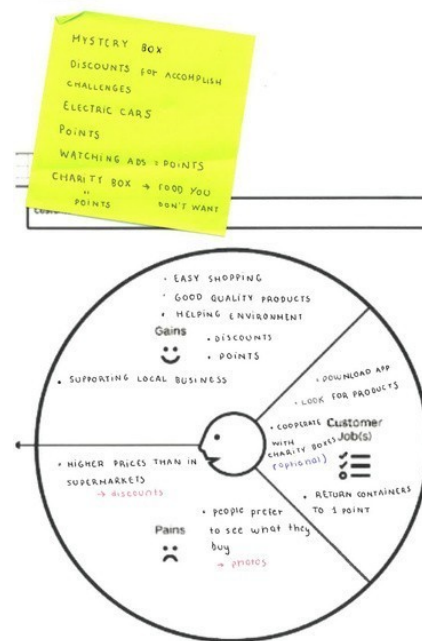 MYSTERY BOX
DISCOUNTS FOR ACCOMPLISH
CHALLENGES
ELECTRIC CARS
POINTS
WATCHING ADS = POINTS
CHARITY BOX → FOOD YOU
DON'T WANT
"
POINTS
• EASY SHOPPING
• GOOD QUALITY PRODUCTS
• HELPING ENVIRONMENT
Gains
• DISCOUNTS
• POINTS
• SUPPORTING LOCAL BUSINESS
• DOWNLOAD APP
• LOOK FOR PRODUCTS
• COOPERATE
WITH
CHARITY BOXES
(optional)
Customer
Job(s)
• RETURN CONTAINERS
TO 1 POINT
• HIGHER PRICES THAN IN
SUPERMARKETS
→ discounts
Pains
• people prefer
to see what they
buy
→ photos